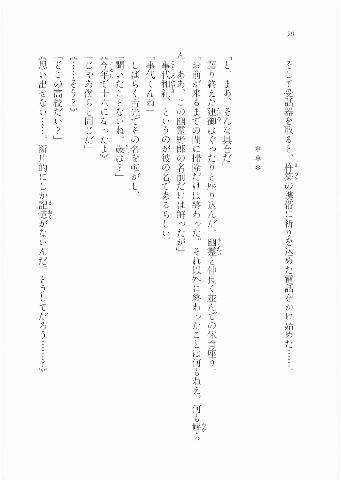 50
そして受話器を取ると、杵築の携帯に祈りを込めた電話をかけ始めた……。
＊＊＊
「と、まあ、そんな具合だ」
語り終えた建御はぐったりと座り込んだ。幽霊と仲良く並んでの体育座り。
「お前が来るまでの間に掃除だけは終わった。それ以外に終わったことは何もねえ。何も解っ
ん、ああ、この幽霊野郎の名前だけは解ったが」
事代和紀、というのが彼の名であるらしい。
「事代くんね」
しばらく舌先でその名を転がし、
「聞いたことないね。歳は？」
《今年で十六になったよ》
「じゃあ僕らと同じだ」
《……そう？》
「どこの高校だい？」
《思い出せない……。断片的にしか記憶がないんだ。どうしてだろう……？》